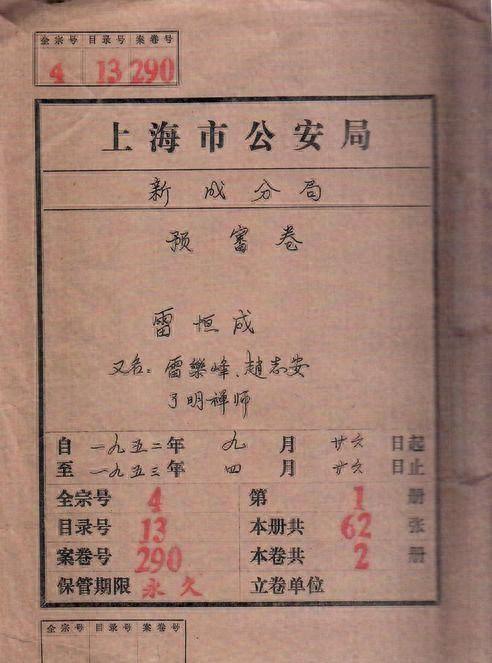 全宗号 目录号 案卷号
4 13 290
上海市公安局
新成分局
预审卷
雷恒成
又名：雷樂峰、趙志安
了明禅师
自一九五二年九月廿六日起
至一九五三年四月廿六日止
全宗号 4 第1册
目录号 13 本册共62张
案卷号 290 本卷共2册
保管期限 永久 立卷单位
全宗号 目录号 案卷号